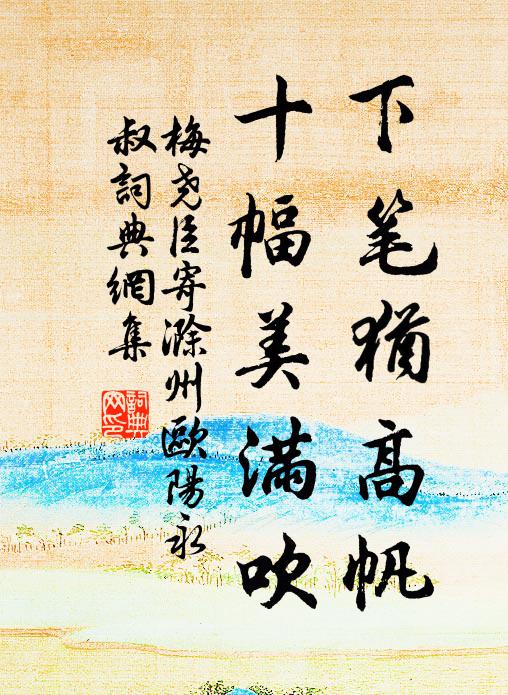 下笔猶高帆
十幅美满吹
梅尧臣寄滁州歐陽永
叔詞典網集
詞典
网印